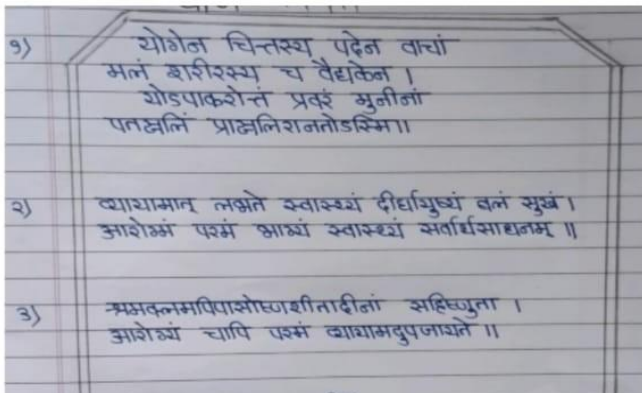 १) योगेन चित्तस्य पदेन वाचां
मलं शरीरस्य च वैद्यकेन ।
योडपाकरोत्तं प्रवरं मुनीनां
पतञ्जलिं प्राञ्जलिरानतोडस्मि॥
२) व्यायामात् लभते स्वास्थ्यं दीर्घायुष्यं बलं सुखं ।
आरोग्यं परमं भाग्यं स्वास्थ्यं सर्वार्थसाधनम् ॥
३) श्रमक्लमपिपासोष्णशीतादीनां सहिष्णुता ।
आरोग्यं चापि परमं व्यायामदुपजायते ॥